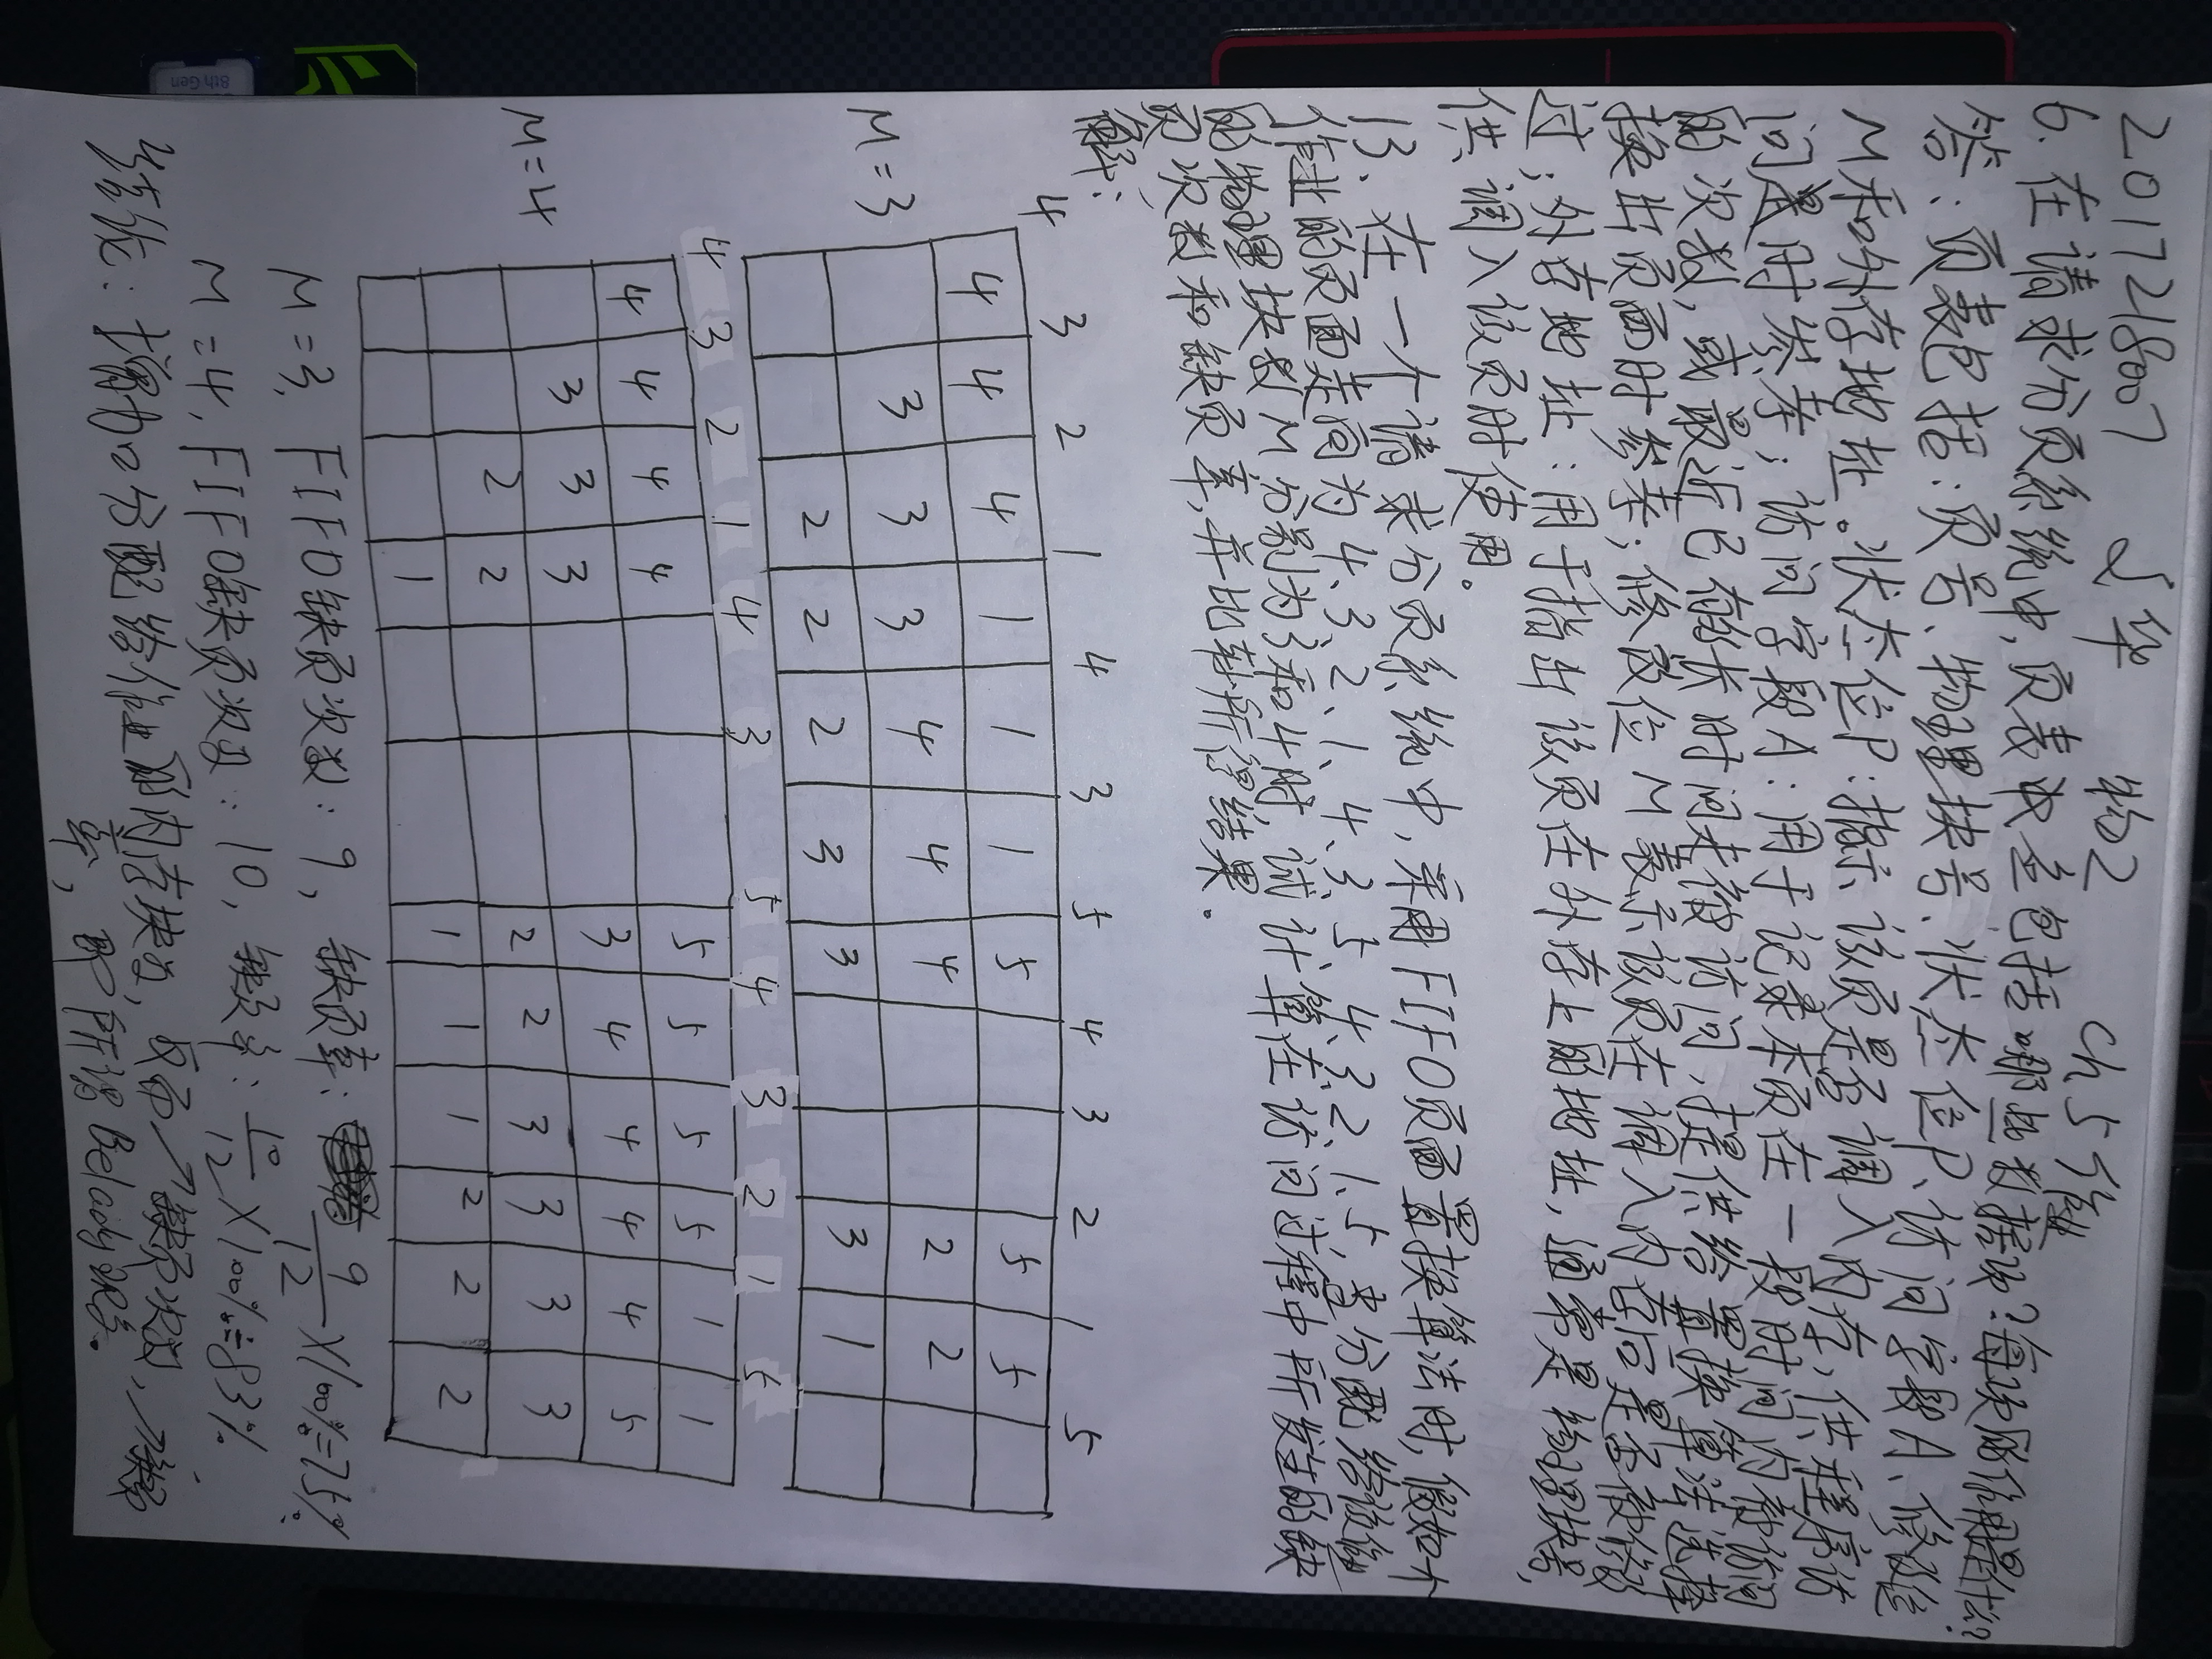 2017218007 华 物2 Ch5作业
6.在请求分页系统中,页表应包括哪些数据项?每项的作用是什么?
答:页表包括:页号、物理块号、状态位P、访问字段A、修改位
M和外存地址。状态位P:指示该页是否调入内存,供程序访
问是时参考;访问字段A:用于记录本页在一段时间内被访问
的次数,或最近已有多长时间未被访问,提供给置换算法选择
换出页面时参考;修改位M表示该页在调入内存后是否被修改
过;外存地址:用于指出该页在外存上的地址,通常是物理块号,
供调入该页时使用。
13、在一个请求分页系统中,采用FIFO页面置换算法时,假如一个
作业的页面走向为4、3、2、1、4、3、5、4、3、2、1、5,当分配给该作业
的物理块数M分别为3和4时,试计算在访问过程中所发生的缺
页次数和缺页率,并比较所得结果。
解:
4 3 2 1 4 3 5 4 3 2 1 5
4 4 4 1 1 1 5 5 5
M=3 3 3 3 4 4 4 2 2
2 2 2 3 3 3 1
4 3 2 1 4 3 5 4 3 2 1 5
4 4 4 4 5 5 5 5 1 1
3 3 3 3 4 4 4 4 5
M=4 2 2 2 2 3 3 3 3
1 1 1 1 2 2 2
M=3, FIFO缺页次数:9,缺页率:9/12×100%=75%
M=4, FIFO缺页次数:10,缺页率:10/12×100%≐83%
结论:增加分配给作业的内存块数,反而↗缺页次数,↗缺页
率,即所谓Belady现象。
8th Gen